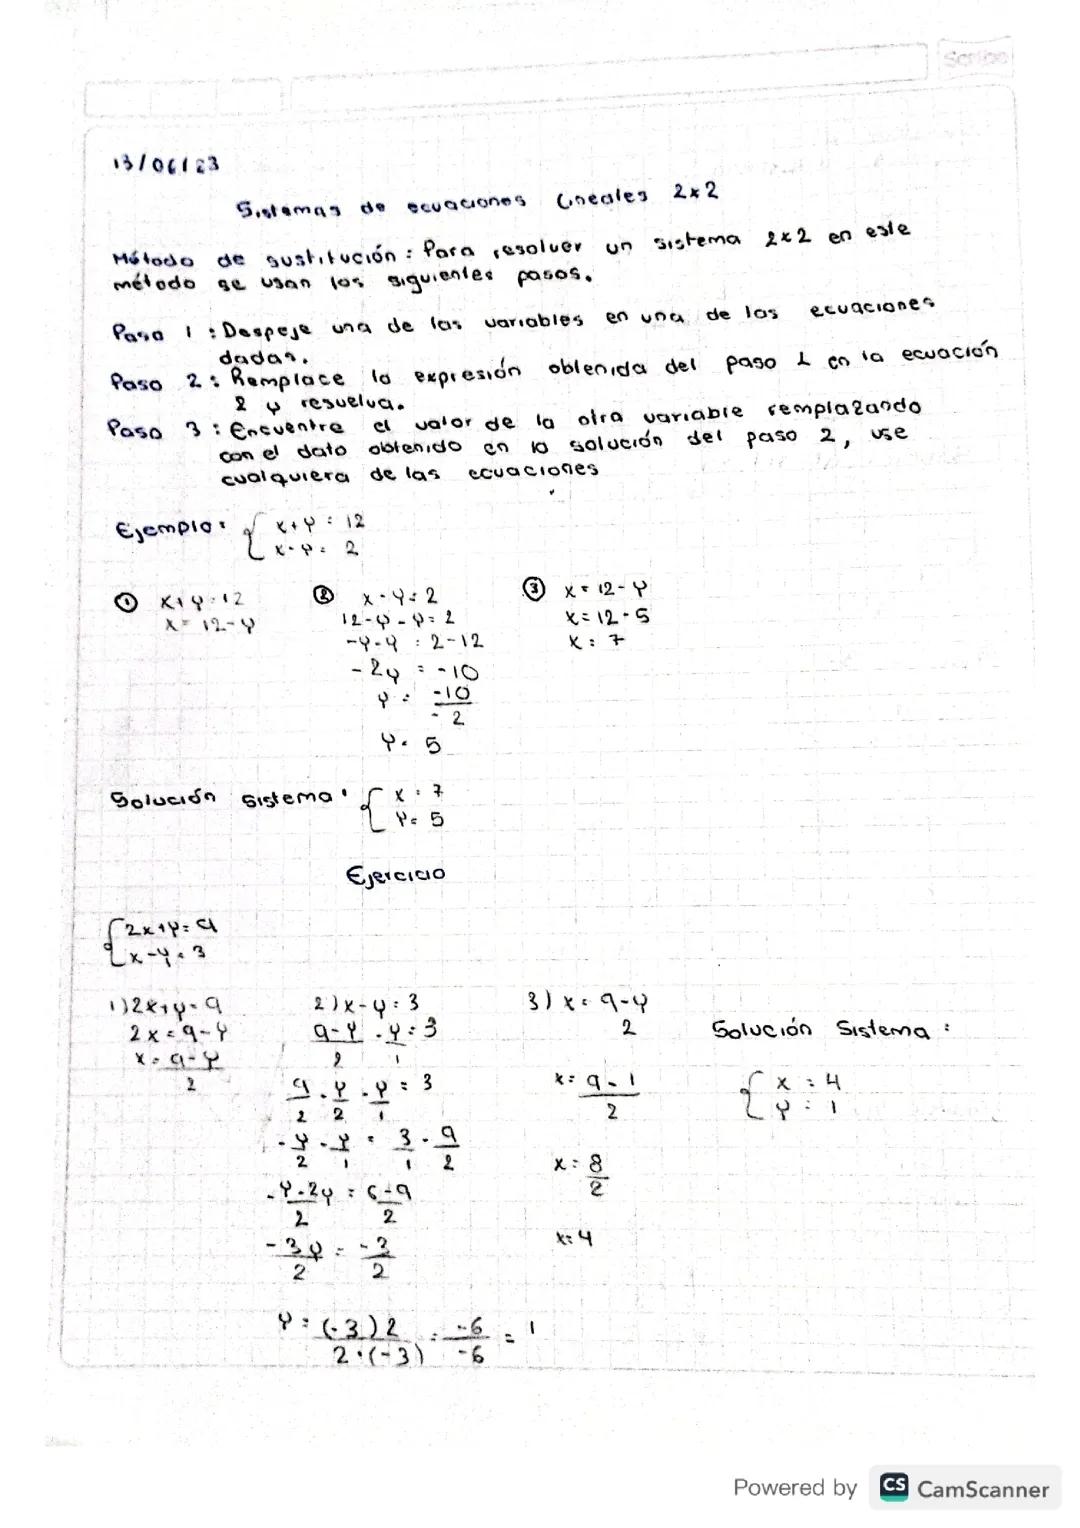 Scribe
13/06/23
Sistemas de ecuaciones Lineales 2x2
Método de sustitución: Para resolver un sistema 2x2 en este
método se usan los siguientes pasos.
Paso 1: Despeje una de las variables en una de las ecuaciones
dadas.
Paso 2: Remplace la expresión obtenida del paso 1 en la ecuación
2 y resuelva.
Paso 3: Encuentre el valor de la otra variable remplazando
con el dato obtenido en la solución del paso 2, use
cualquiera de las ecuaciones
Ejemplo: { x+y = 12
x-y = 2
① x+y=12
x=12-y
② x-y=2
12-y-y=2
-y-y = 2-12
-2y = -10
y = -10/-2
y = 5
③ x=12-y
x=12-5
x=7
Solución sistema: { x=7
y=5
Ejercicio
{ 2x+y=9
x-y=3
1) 2x+y=9
2x=9-y
x=9-y/2
2) x-y=3
9-y/2 - y/1 = 3
9/2 - y/2 - y/1 = 3
-y/2 - y/1 = 3/1 - 9/2
-y-2y/2 = 6-9/2
-3y/2 = -3/2
y = (-3)2/2·(-3) = -6/-6 = 1
3) x = 9-y
2
x = 9-1/2
x = 8/2
x=4
Solución Sistema:
{ x = 4
y = 1
Powered by CS CamScanner